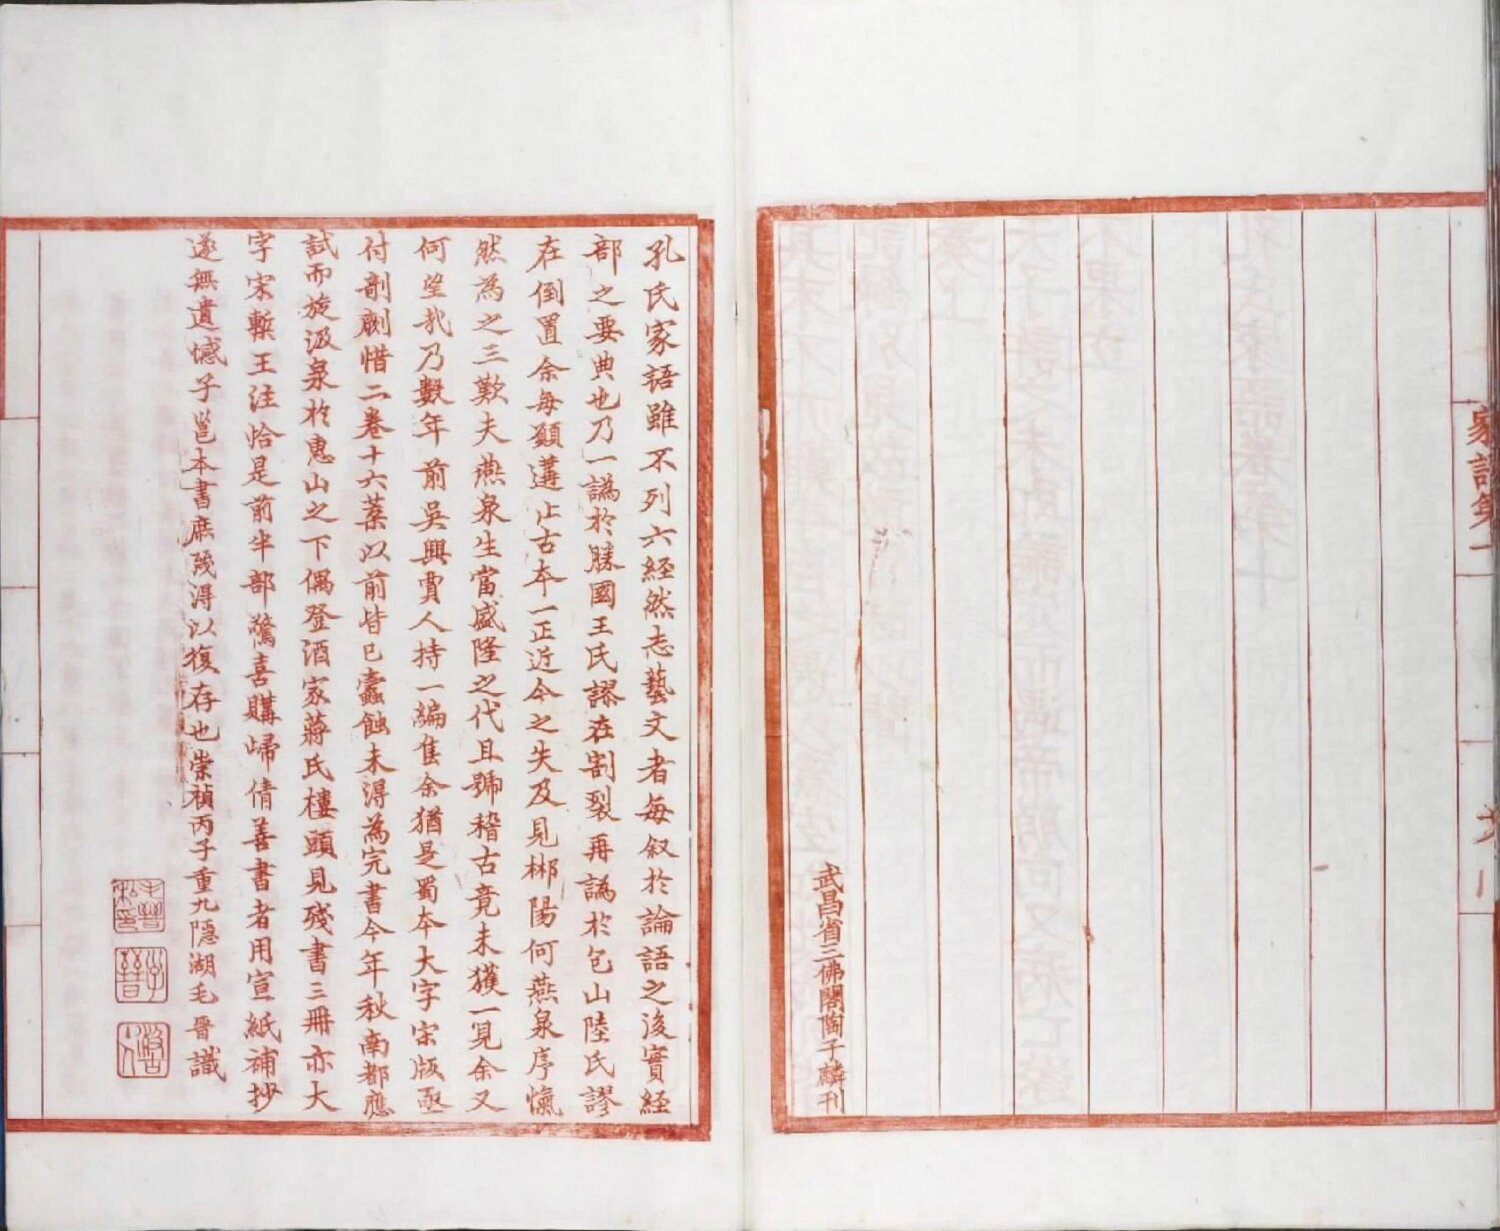 家語第十
武昌省三佛閣陶子麟刊
孔氏家語雖不列六經然志藝文者每叙於論語之後實經
部之要典也乃一譌於勝國王氏謬在割裂再譌於包山陸氏謬
在倒置余每願遘止古本一正近今之失及見郴陽何燕泉序愾
然為之三歎夫燕泉生當盛隆之代且號稽古竟未獲一見余又
何望哉乃數年前吳興賈人持一編售余猶是蜀本大字宋版亟
付剞劂惜二卷十六葉以前皆已蠹蝕未得為完書今年秋南都應
試而旋汲泉於惠山之下偶登酒家蔣氏樓頭見殘書三冊亦大
字宋槧王注恰是前半部驚喜購歸倩善書者用宣紙補抄
遂無遺憾子邕本書庶幾得以復存也崇禎丙子重九隱湖毛晉識